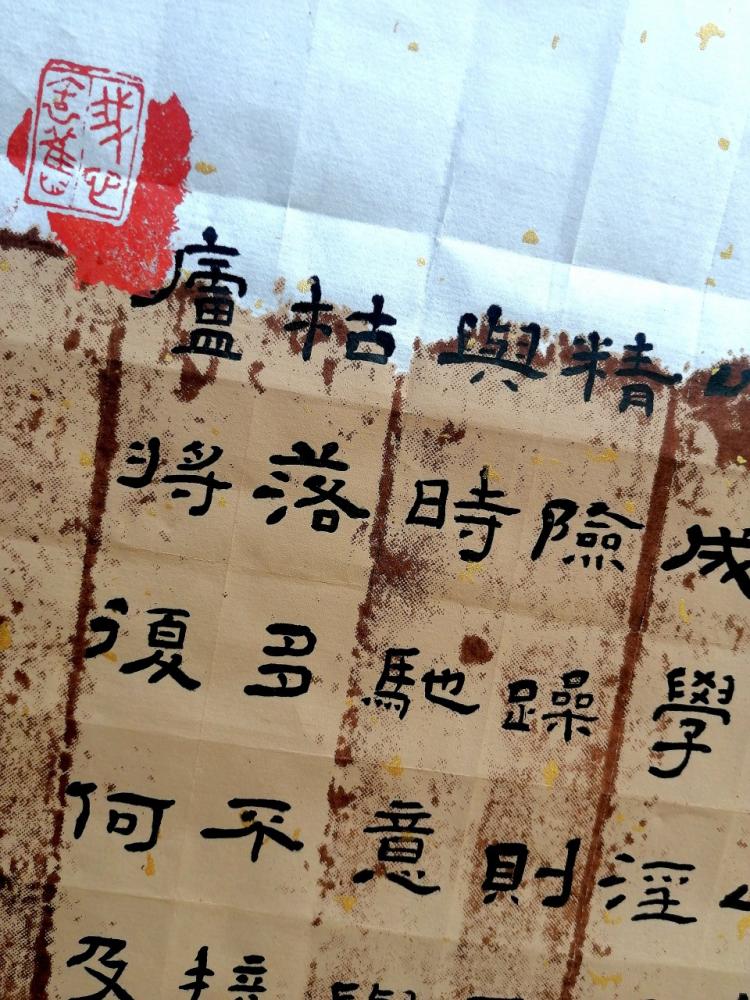 成學淫
精險躁則
與時馳意與
枯落多不接
廬將復何及